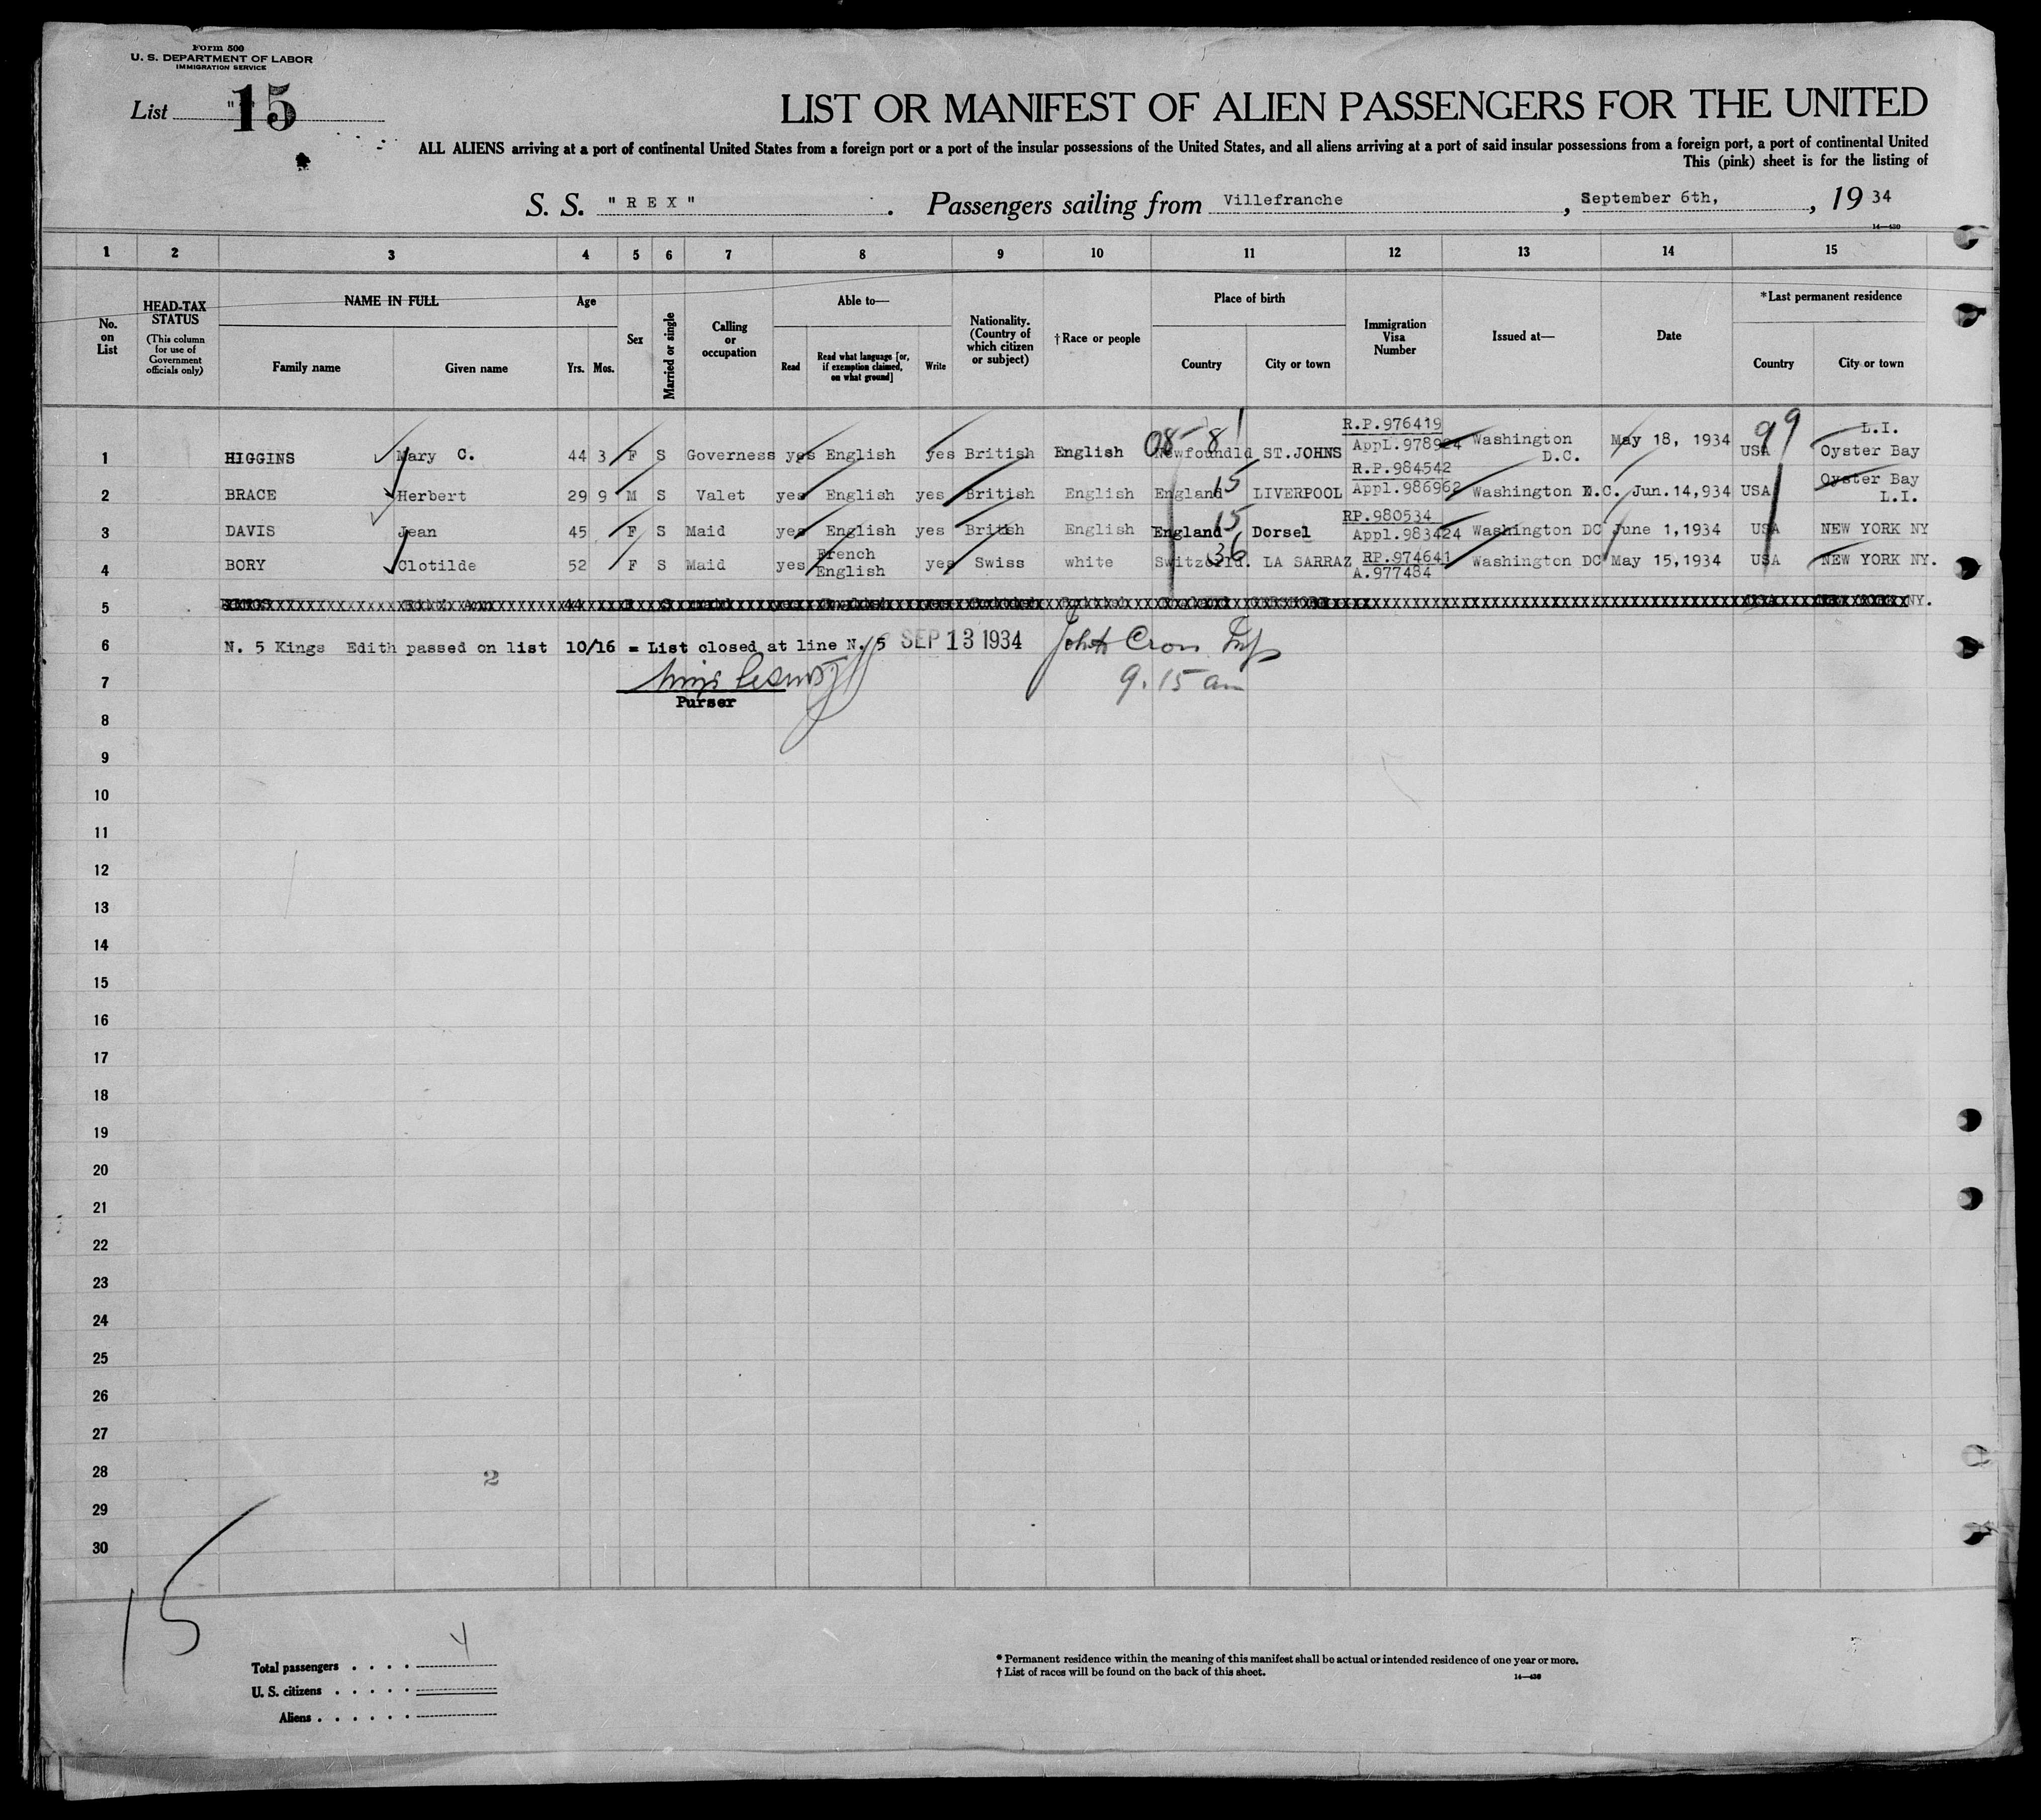 Form 500
U. S. DEPARTMENT OF LABOR
IMMIGRATION SERVICE
List 15
LIST OR MANIFEST OF ALIEN PASSENGERS FOR THE UNITED
ALL ALIENS arriving at a port of continental United States from a foreign port or a port of the insular possessions of the United States, and all aliens arriving at a port of said insular possessions from a foreign port, a port of continental United
This (pink) sheet is for the listing of
S. S. "REX". Passengers sailing from Villefranche, September 6th, 1934
14—430
1 2 3 4 5 6 7 8 9 10 11 12 13 14 15
No. on List
HEAD-TAX STATUS (This column for use of Government officials only)
NAME IN FULL
Family name Given name
Age
Yrs. Mos.
Sex
Married or single
Calling or occupation
Able to—
Read Read what language [or, if exemption claimed, on what ground] Write
Nationality. (Country of which citizen or subject)
† Race or people
Place of birth
Country City or town
Immigration Visa Number
Issued at—
Date
* Last permanent residence
Country City or town
08- 8 99
1 HIGGINS Mary C. 44 3 F S Governess yes English yes British English Newfoundld ST.JOHNS R.P.976419 Appl.978924 Washington D.C. May 18, 1934 USA L.I. Oyster Bay
2 BRACE Herbert 29 9 M S Valet yes English yes British English England 15 LIVERPOOL R.P.984542 Appl.986962 Washington D.C. Jun.14,934 USA Oyster Bay L.I.
3 DAVIS Jean 45 F S Maid yes English yes British English England 15 Dorsel RP.980534 Appl.983424 Washington DC June 1,1934 USA NEW YORK NY
4 BORY Clotilde 52 F S Maid yes French English yes Swiss white Switzerld. 36 LA SARRAZ RP.974641 A.977484 Washington DC May 15,1934 USA NEW YORK NY.
5 NY.
6 N. 5 Kings Edith passed on list 10/16 = List closed at line N. 5 SEP 13 1934 John Cron Insp
7 9.15 am
Purser
8
9
10
11
12
13
14
15
16
17
18
19
20
21
22
23
24
25
26
27
28 2
29
30
15
Total passengers . . . . 4
U. S. citizens . . . . .
Aliens . . . . . .
* Permanent residence within the meaning of this manifest shall be actual or intended residence of one year or more.
† List of races will be found on the back of this sheet.
14—430